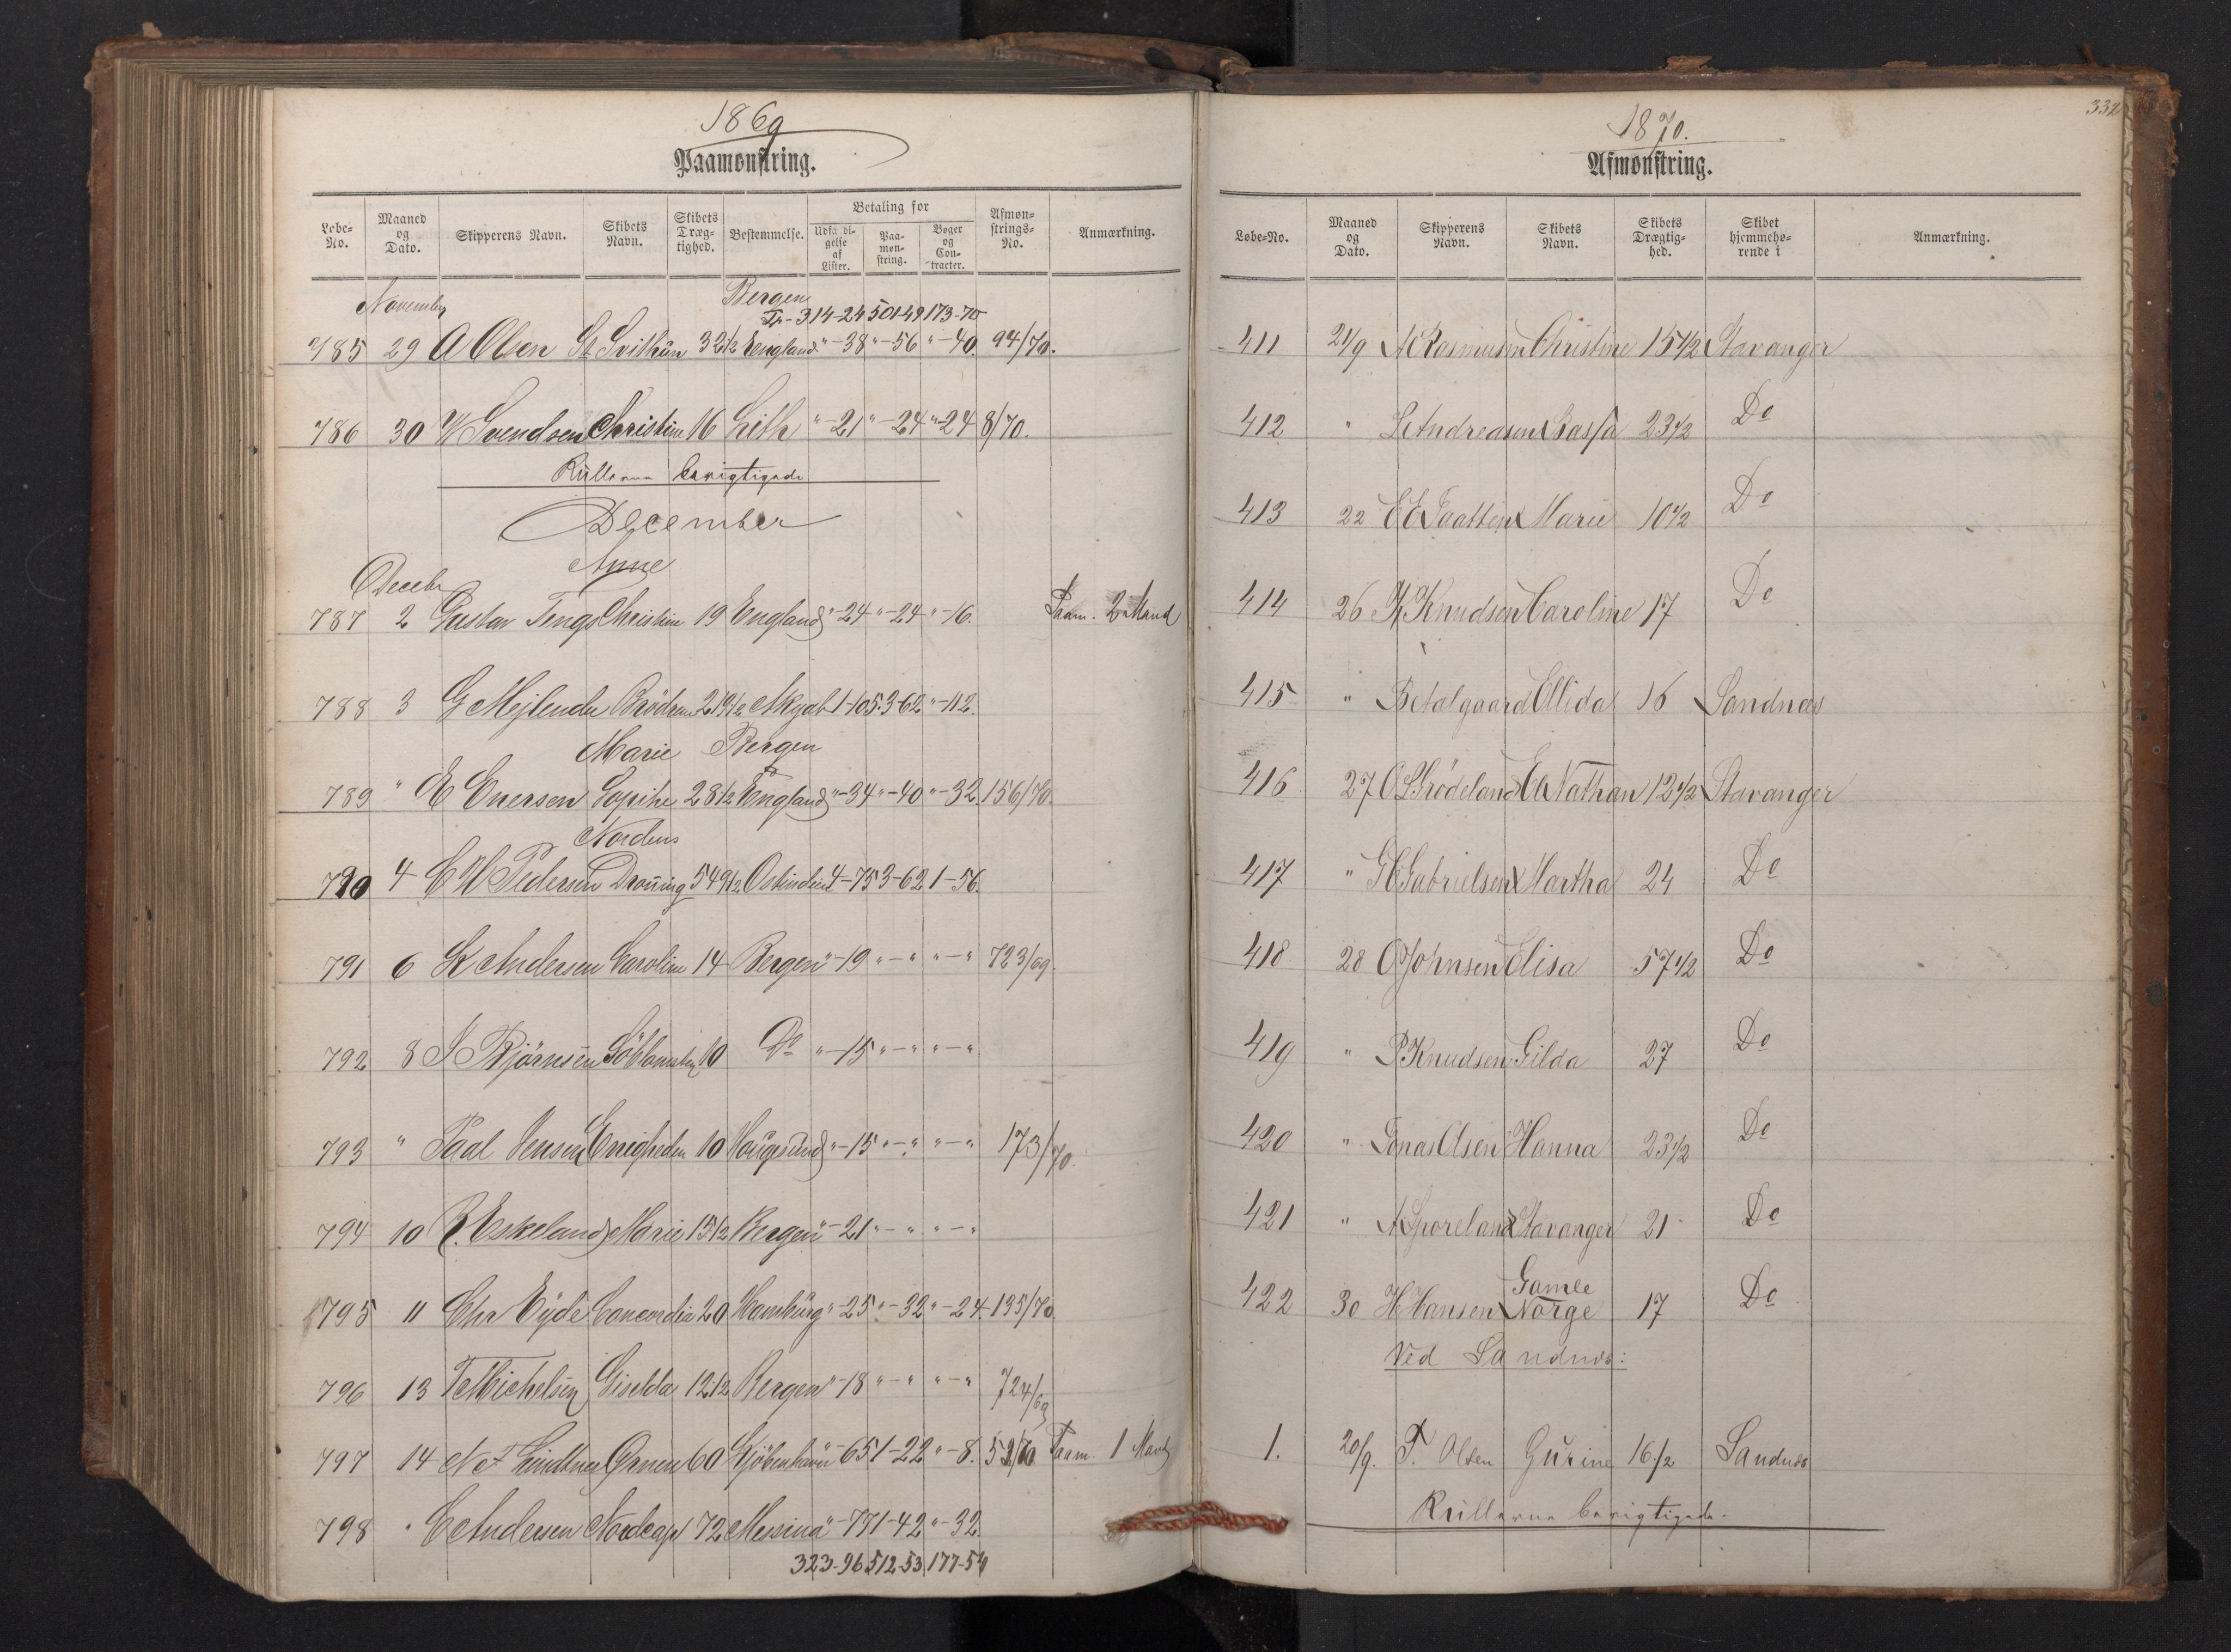 1869
Paamønstring.
Løbe-No. Maaned og Dato. Skipperens Navn. Skibets Navn. Skibets Dræg-tighed. Bestemmelse. Betaling for Udfærdigelse af Lister. Paa-møn-string. Bøger og Con-tracter. Afmøn-strings-No. Anmærkning.
November Bergen
Tr- 314-24 501-49 173-70
785 29 A Olsen St Svithun 32 1/2 England "-38 "-56 "-40. 94/70.
786 30 W Svendsen Christine 16 Leith "-21 "-24 "-24 8/70.
Rullerne berigtigede
December
Decebr Anne
787 2 Gustav Tengs Christine 19 England "-24 "-24 "-16. Paam. 2 Mand
788 3 G Mejlender Brödrene 219 1/2 Akyab 1-105 3-62 "-112.
Marie Bergen
789 " E Enersen Sophie 28 1/2 England "-34 "-40 "-32. 156/70.
Nordens
790 4 C W Pedersen Droning 549 1/2 Ostindien 4-75 3-62 1-56.
791 6 K Andersen Caroline 14 Bergen "-19 "-" "-" 723/69.
792 8 J Björnsen 10 Do "-15 "-" "-"
793 " Paal Jensen Enigheden 10 Hougesund "-15 "-" "-" 173/70.
794 10 R. Eskeland Marie 15 1/2 Bergen "-21 "-" "-"
795 11 Chr Eyde Concordia 20 Hamburg "-25 "-32 "-24. 135/70.
796 13 T Michelsen Giselda 12 1/2 Bergen "-18 "-" "-" 724/69
797 14 N F Lindtner Ørnen 60 Kjöbenhavn "-65 1-22 "-8. /70 Paam. 1 Mand
798 " C Andersen Nordcap 72 Messina "-77 1-42 "-32.
323-96 512-53 177-54
332
1870.
Afmønstring.
Løbe-No. Maaned og Dato. Skipperens Navn. Skibets Navn. Skibets Drægtig-hed. Skibet hjemmehø-rende i Anmærkning.
411 21/9 A Rasmusen Christine 15 1/2 Stavanger
412 " L Andreasen 23 1/2 Do
413 22 E E Taatten Marie 10 1/2 Do
414 26 K Knudsen Caroline 17 Do
415 " Betalgaard Ellida 16 Sandnæs
416 27 O S Frödeland El Nathan 12 1/2 Stavanger
417 " G C Gabrielsen Martha 24 Do
418. 28 O Johnsen Elisa 57 1/2 Do
419 " P Knudsen Gilda 27 Do
420 " Jonas Olsen Hanna 23 1/2 Do
421 " A Sporeland Stavanger 21 Do
Gamle
422 30 H Hansen Norge 17 Do
Ved Sandnæs:
1. 20/9. T. Olsen Gurine 16 1/2 Sandnæs
Rullerne berigtigede.